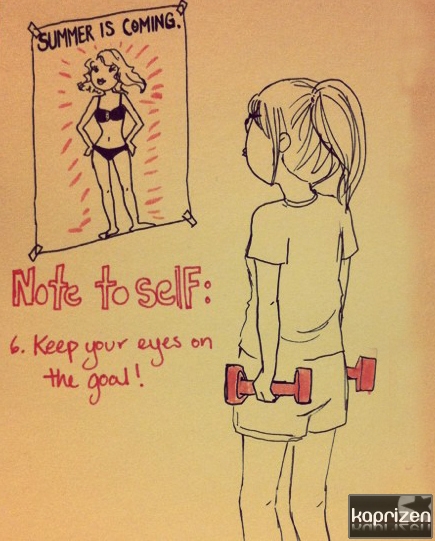 SUMMER IS COMING.
Note to self:
6. Keep your eyes on
the goal!
kaprizen